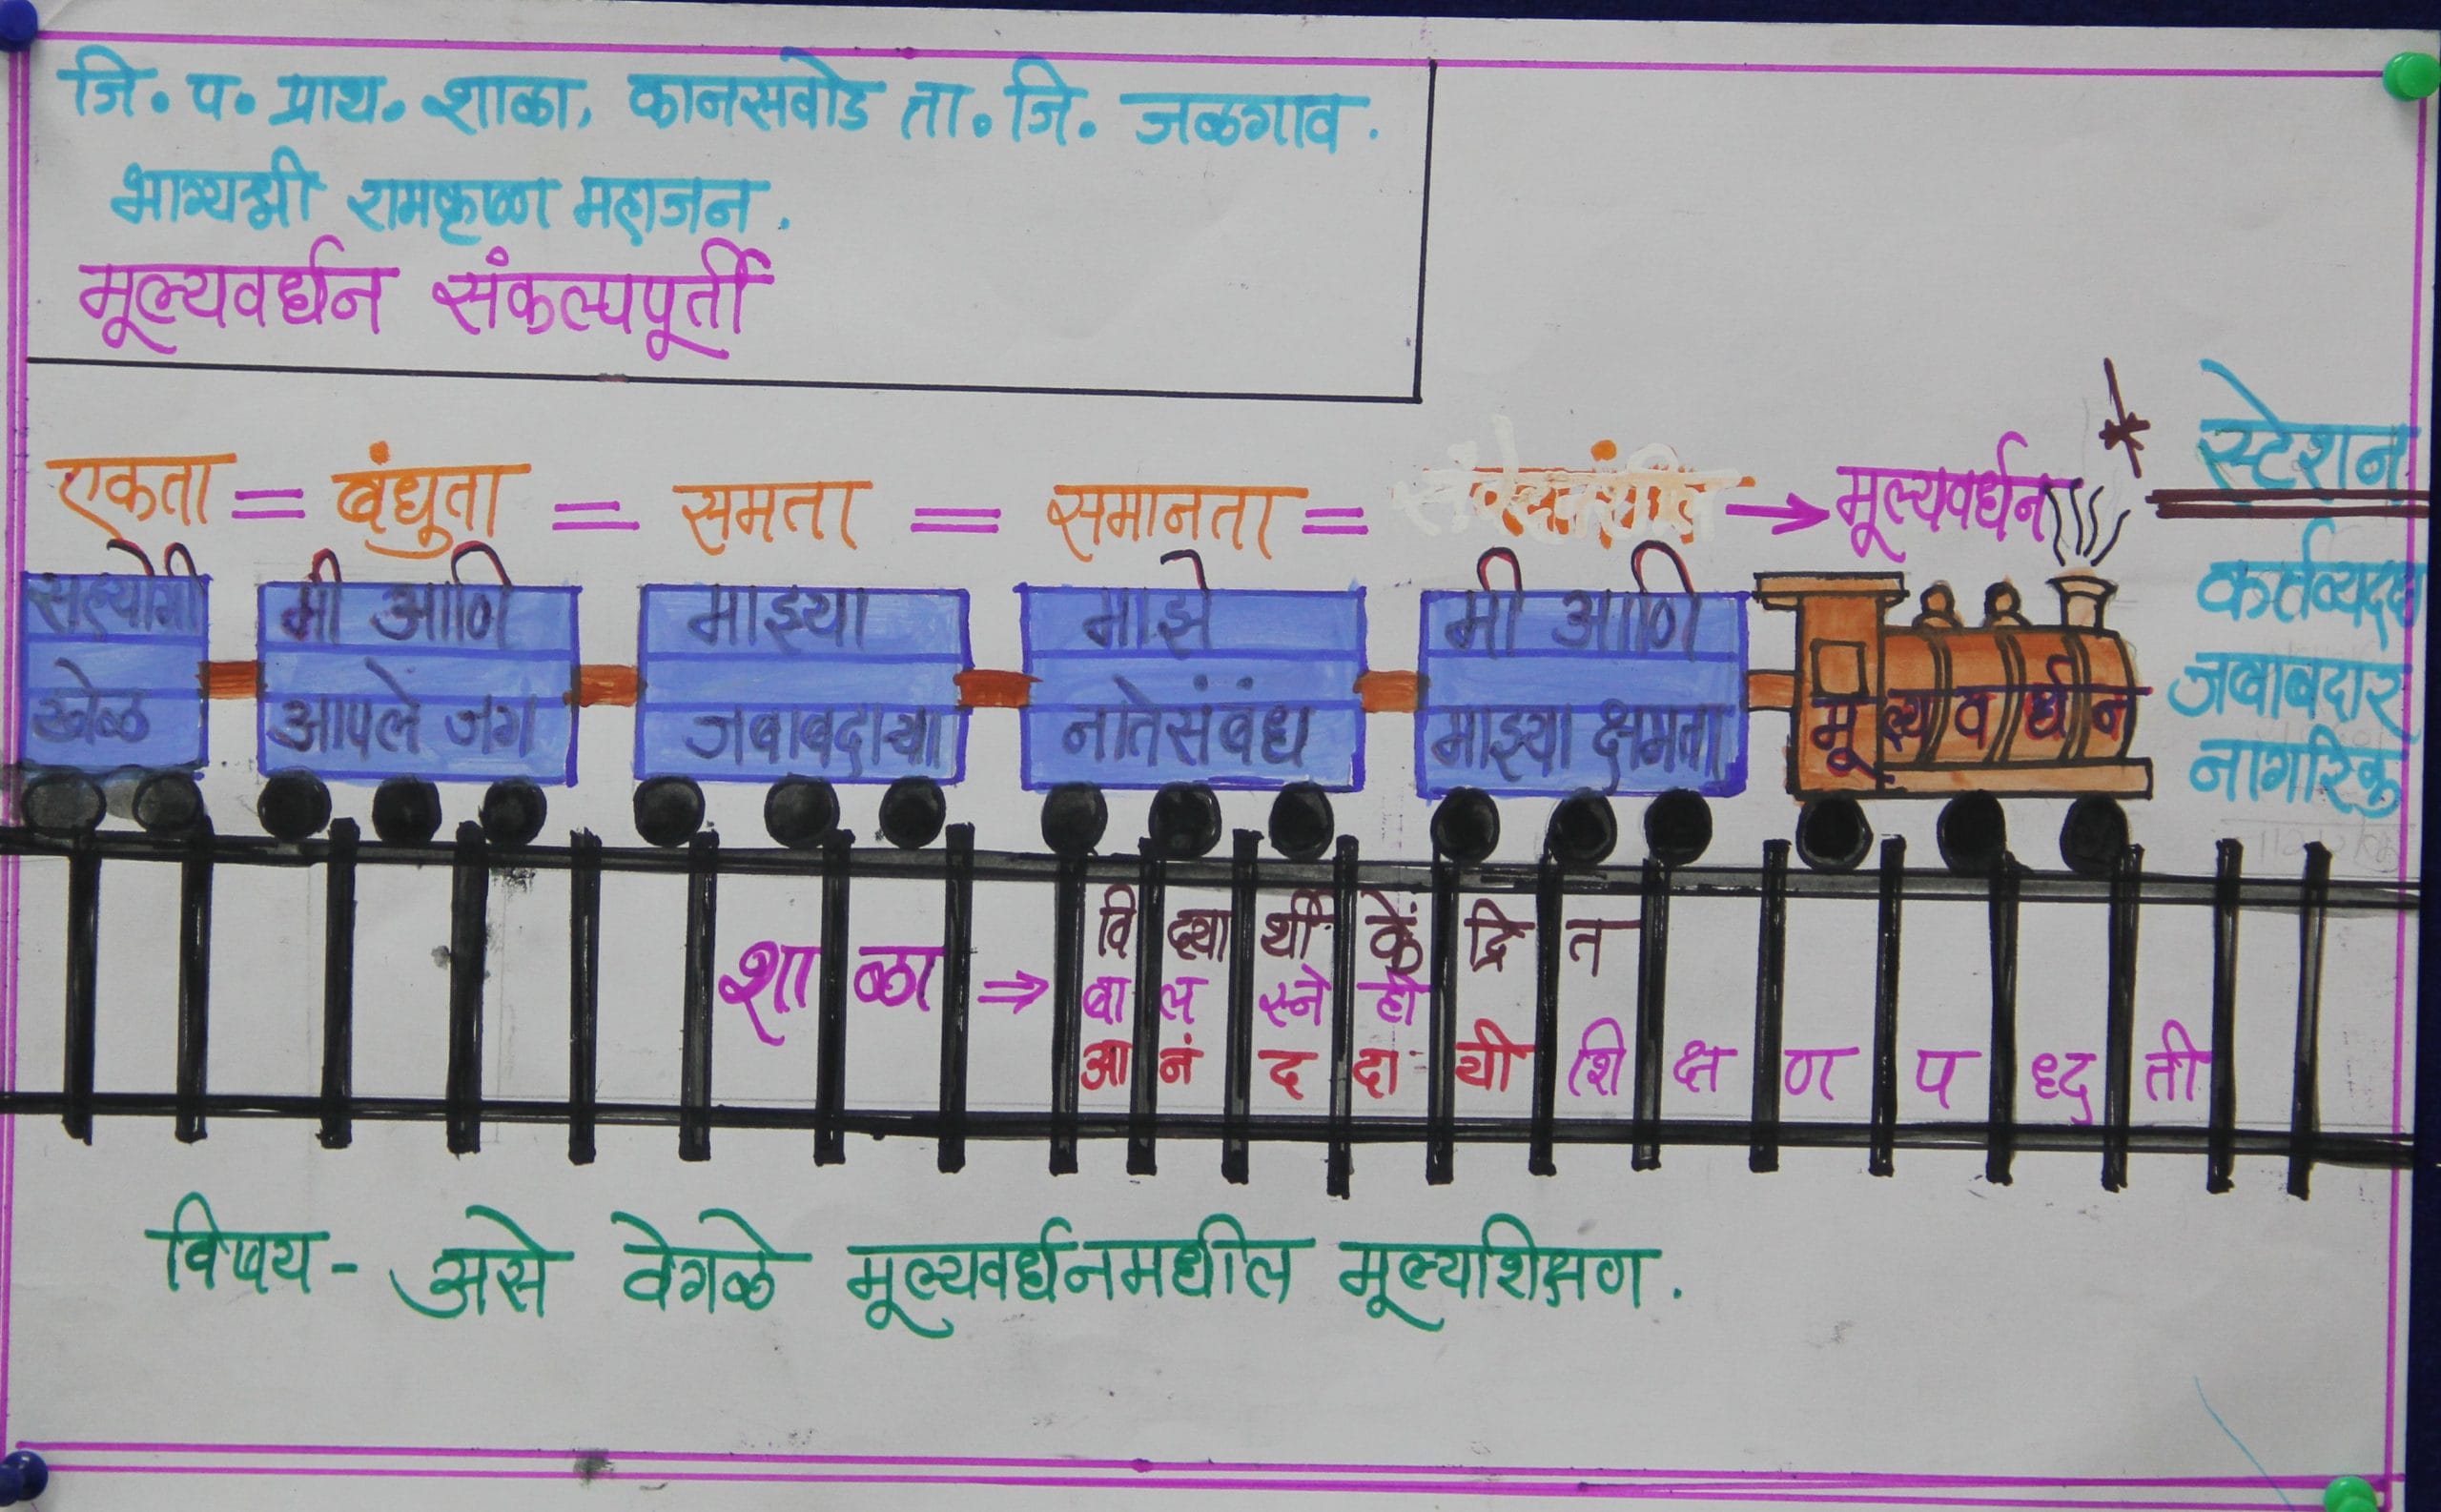 जि. प. प्राथ. शाळा, कानसवाेड ता. जि. जळगाव.
भाग्यश्री रामकृष्ण महाजन.
मूल्यवर्धन संकल्पपूर्ती
एकता = बंधुता = समता = समानता = → मूल्यवर्धन * स्टेशन
सहयोगी खेळ
मी आणि आपले जग
माझ्या जबाबदाऱ्या
माझे नातेसंबंध
मी आणि माझ्या क्षमता
मूल्यवर्धन
कर्तव्यदक्ष
जबाबदार
नागरिक
विद्यार्थी केंद्रित
शाळा ⇒ बाल स्नेही
आनंददायी शिक्षण पध्दती
विषय - असे वेगळे मूल्यवर्धनमधील मूल्यशिक्षण.